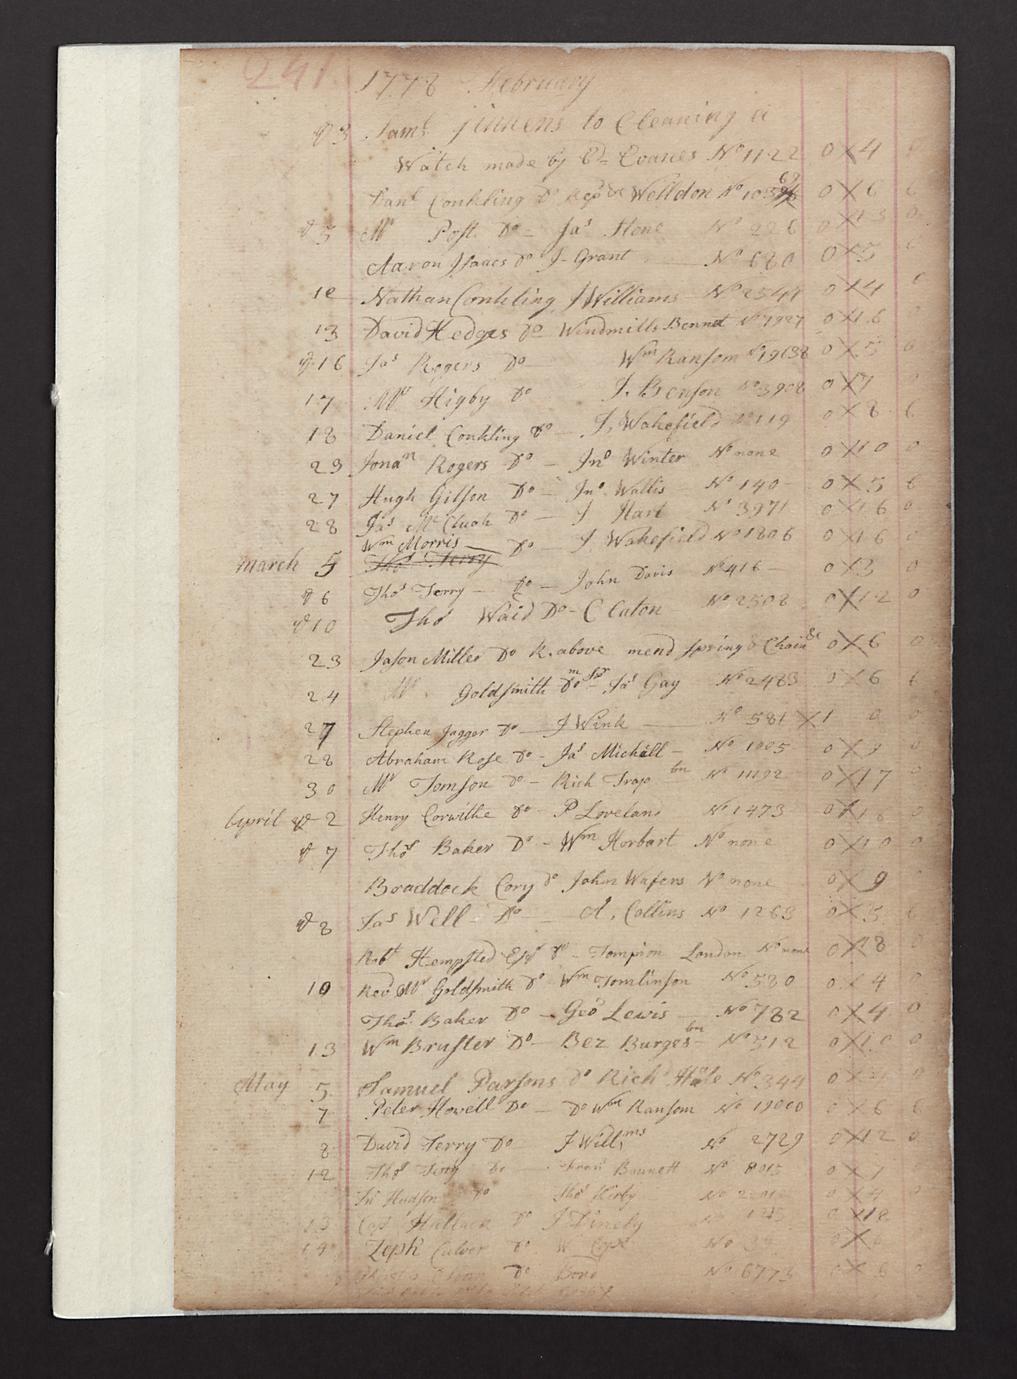 241
1778 February
3 Sam.l Jinnens to Cleaning a
Watch made by Ed. Evanes No 1122 0 X 4
Danl Conkling Do Welldon No 0 X 6 6
5 Mr Post Do - Jas Hone No 226
Aaron Isaacs Do J. Grant No 680 0 X 5
Nathan Conkling J Williams No 2544 0 X 4
13 David Hedges Do Windmills Bennet No 7927 0 X 16
16 Jas Rogers Do Wm Ransom No 19638 0 X 5 6
17 Mr Higby Do J. Benson No 3908 0 X 7
18 Daniel Conkling Do - J. Wakefield No 119 0 X 8 6
23 Jonan Rogers Do - Jno Winter No none 0 X 10 0
27 Hugh Gilson Do - Jno Wallis No 140 - 0 X 5 6
28 Jas Mc Do - J Hart No 3971 0 X 16 0
Wm Morris
March 5 Thos Terry Do - J. Wakefield No 1806 0 X 16 0
6 Thos Terry - Do - John Davis No 416 - 0 X 3 0
10 Thos Waid Do - C Claton No 2508 0 X 12 0
23 Jason Miller Do R. above mend spring & Chain &c 0 X 6 0
24 Mr Goldsmith Do - Jas Gay No 2483 0 X 6 6
27 Stephen Jagger Do - J Wink No 581 X 1 0 0
28 Abraham Rose Do - Jas Michall - No 1005 0 X 9 0
30 Mr Tomson Do - Rich Trap No 11192 0 X 17
April 2 Henry Corwithe Do - P Loveland No 1473 0 X 0
7 Thos Baker Do - Wm Horbart No none 0 X 10 0
Braddock Cory Do John Wafers No none 0 X 9
8 Jas Well - Do - A. Collins No 1263 0 X 5 6
Robt Hempsted Esqr Do - Tompion London No none 0 X 18 0
10 Revd Mr Goldsmith Do Wm Tomlinson No 580 0 X 4 0
Thos Baker Do - Geo Lewis - No 782 0 X 4 0
13 Wm Bruster Do - Bez Burges - No 512 0 X 10 0
May 5 Samuel Parsons Do Richd Hale No 344 0 X
7 Peter Howell Do - Do Wm Ransom No 19000 0 X 6 6
8 David Terry Do J Willms No 2729 0 X 12 0
12 Thos Terry Do Bennett No 0 X
Jn Hudson Do Thos Kirby No 0 X 4
Capt Hallack Do J No 0 X 18
14 Zeph Culver Do W No 0 X
Do Bond No 6773 0 X